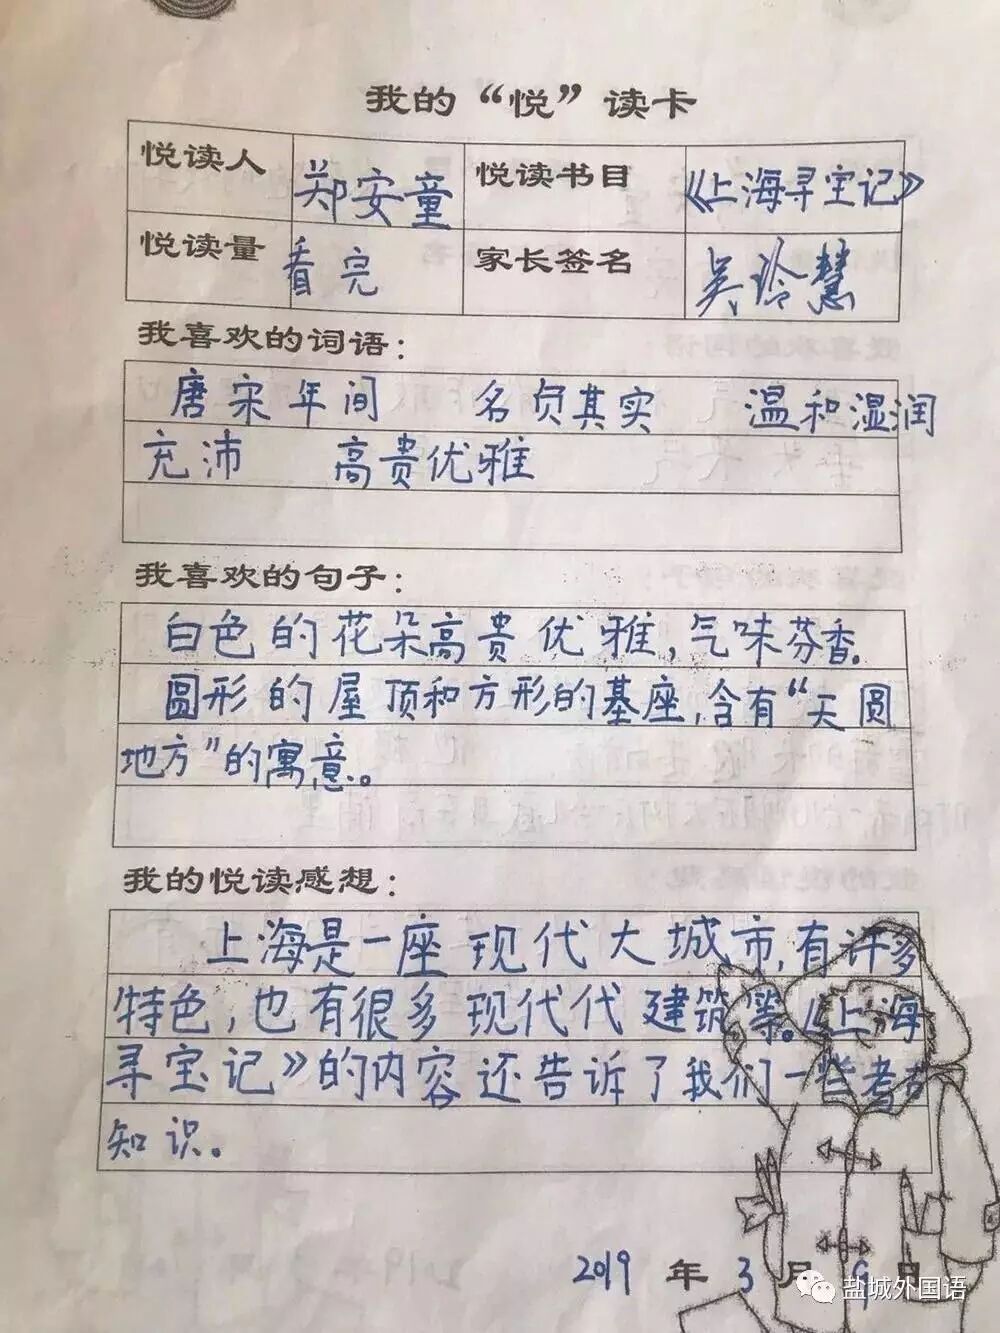 我的“悦”读卡
悦读人 郑安童 悦读书目 《上海寻宝记》
悦读量 看完 家长签名 吴玲慧
我喜欢的词语：
唐宋年间 名负其实 温和湿润
充沛 高贵优雅
我喜欢的句子：
白色的花朵高贵优雅,气味芬香.
圆形的屋顶和方形的基座,含有“天圆
地方”的寓意。
我的悦读感想：
上海是一座现代大城市,有许多
特色,也有很多现代代建筑等。《上海
寻宝记》的内容还告诉了我们一些考古
知识。
2019 年 3 月 9 日
盐城外国语